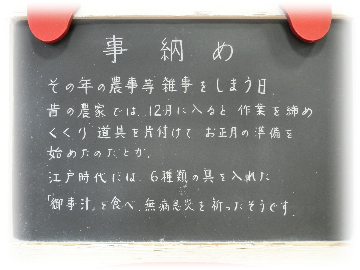 事納め
その年の農事等雑事をしまう日。
昔の農家では、12月に入ると作業を締め
くくり道具を片付けてお正月の準備を
始めたのだとか。
江戸時代には、6種類の具を入れた
「御事汁」を食べ、無病息災を祈ったそうです。